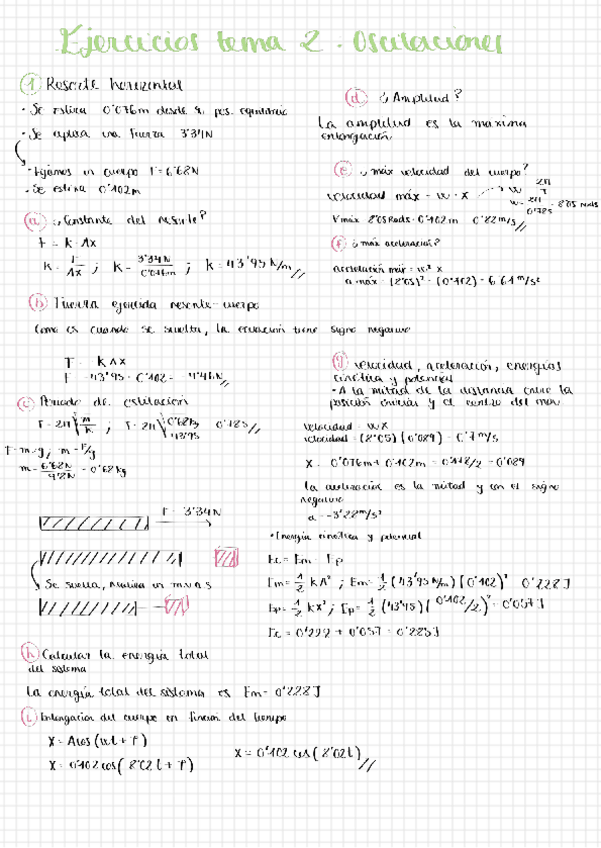 Ejercicios tema 2 - Oscilaciones
① Resorte horizontal
· Se estira 0'076m desde
· Se aplica una fuerza 3'34N
· Fijamos un cuerpo F=6'68N
· Se estira 0'102m
ⓐ ¿Constante del resorte?
F = K · Δx
K = F/Δx ; K = 3'34N/0'076m ; K = 43'95 N/m //
ⓑ Fuerza ejercida resorte-cuerpo
Como es cuando se suelta, la ecuación tiene signo negativo
F = K Δx
F = -43'95 · 0'102 = -4'46N //
ⓒ Periodo de oscilación
T = 2π √(m/K) ; T = 2π √(0'68Kg/43'95) 0'785 //
F = m·g ; m = F/g
m = 6'68N/9'8N = 0'68 Kg
F = 3'34N
Se suelta, realiza un m.v.a.s
ⓓ ¿Amplitud?
La amplitud es la maxima
elongación
ⓔ ¿máx velocidad del cuerpo?
velocidad máx = w · x w 2π/T
w = 2π/0'785 = 8'05 rad/s
Vmáx 8'05 Rad/s · 0'102m 0'82 m/s //
ⓕ ¿máx aceleración?
aceleración máx = w² x
a máx = (8'05)² · (0'102) = 6'61 m/s²
ⓖ velocidad, aceleración, energías
cinética y potencial
· A la mitad de la distancia entre la
posición inicial y el centro del mov.
velocidad = w x
velocidad = (8'05) (0'089) = 0'7 m/s
x = 0'076m + 0'102m = 0'178/2 = 0'089
la aceleración es la mitad y con el signo
negativo
a = -3'28 m/s²
· Energía cinética y potencial
Ec = Em - Ep
Em = 1/2 K A² ; Em = 1/2 (43'95 N/m) (0'102)² 0'228 J
Ep = 1/2 K x² ; Ep = 1/2 (43'95) (0'102/2)² = 0'057 J
Ec = 0'222 + 0'057 = 0'285 J
ⓗ Calcular la energía total
del sistema
La energía total del sistema es Em = 0'228 J
ⓘ Elongacion del cuerpo en funcion del tiempo
x = A cos (wt + φ)
x = 0'102 cos (8'02 t + φ)
x = 0'102 cos (8'02t) //